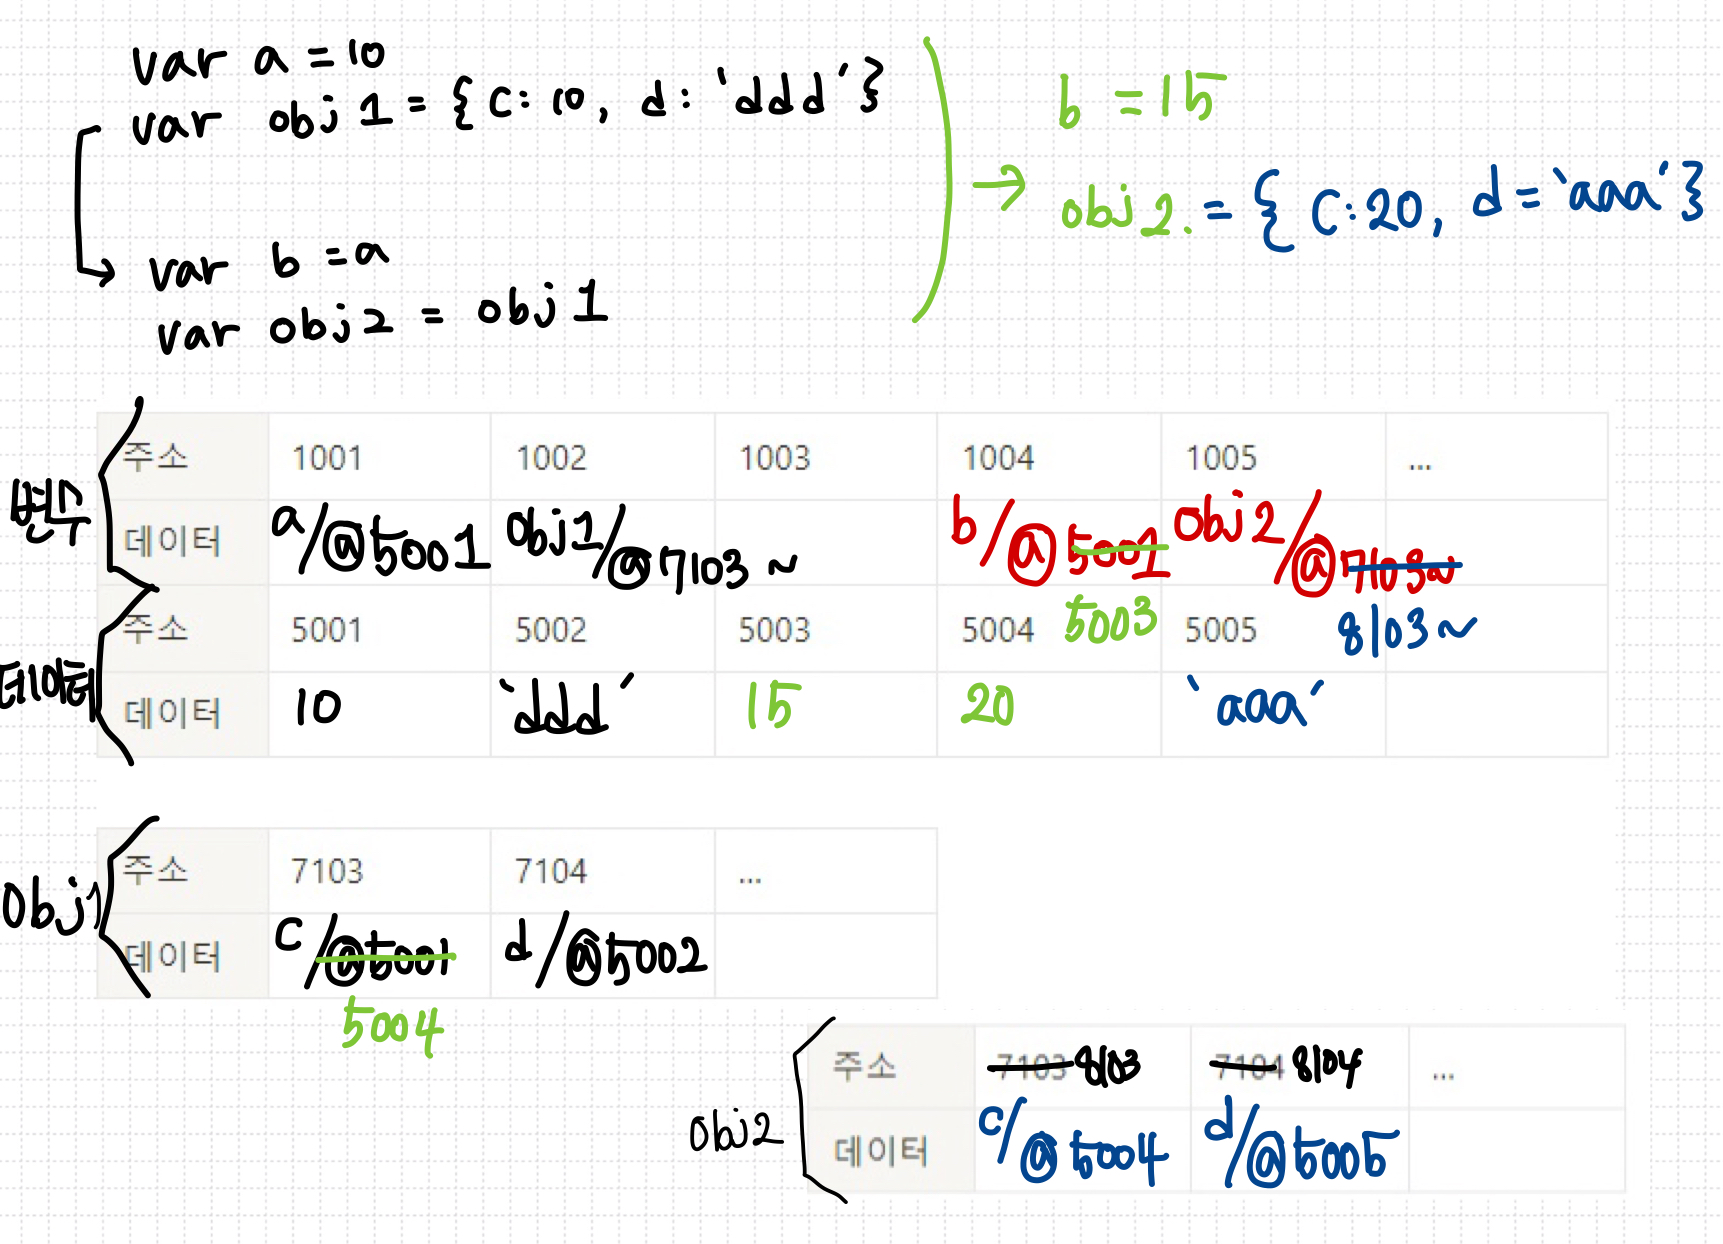 var a = 10
var obj 1 = { c: 10, d: 'ddd' }
var b = a
var obj2 = obj 1
b = 15
→ obj 2. = { c: 20, d = 'aaa' }
변수
주소 1001 1002 1003 1004 1005 ...
데이터 a/@5001 obj1/@7103 ~ b/@5001 obj2/@7103~
5003 8103~
데이터
주소 5001 5002 5003 5004 5005
데이터 10 'ddd' 15 20 'aaa'
obj1
주소 7103 7104 ...
데이터 c/@5001 d/@5002
5004
obj2
주소 7103 8103 7104 8104 ...
데이터 c/@5004 d/@5005